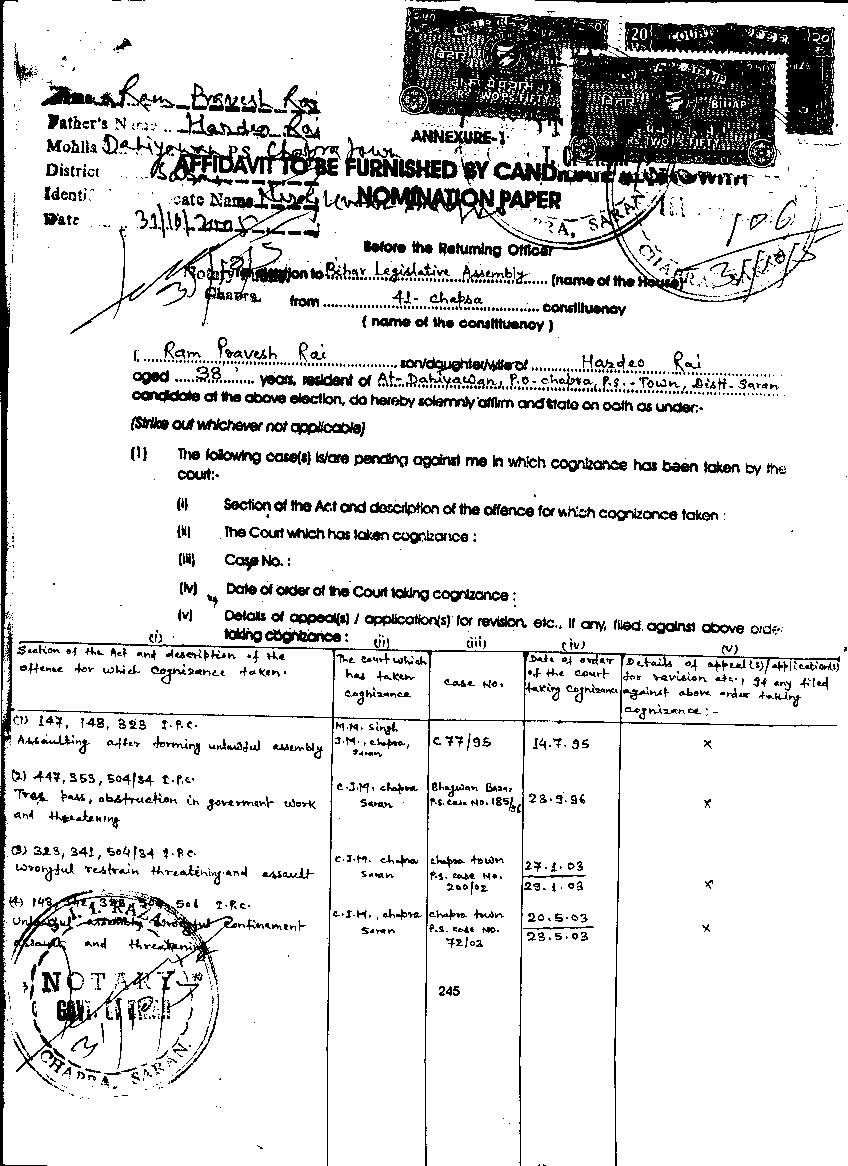 Ram Pravesh Rai
Father's Name Hardeo Rai
Mohlla Dahiyawan P.S. Chapra Town
District
ANNEXURE-1
AFFIDAVIT TO BE FURNISHED BY CANDIDATE
Identi cate Name
NOMINATION PAPER
Date 31/10/2005
CHAPRA, SARAN
106
Before the Returning Officer
to Bihar Legislative Assembly (name of the House)
Chapra
from 41- Chapra constituency
( name of the constituency )
I, Ram Pravesh Rai son/daughter/wife of Hardeo Rai
aged 38 years, resident of At- Dahiyawan, P.O- chapra, P.S.- Town, Distt- Saran
candidate at the above election, do hereby solemnly affirm and state on oath as under:-
(Strike out whichever not applicable)
(1) The following case(s) is/are pending against me in which cognizance has been taken by the
court:-
(i) Section of the Act and description of the offence for which cognizance taken :
(ii) The Court which has taken cognizance :
(iii) Case No. :
(iv) Date of order of the Court taking cognizance :
(v) Details of appeal(s) / application(s) for revision, etc., if any, filed against above order
taking cognizance :
(i) (ii) (iii) (iv) (v)
Section of the Act and description of the
offense for which Cognizance taken.
The court which
has taken
cognizance
Case No.
Date of order
of the court
taking Cognizance
Details of appeal(s)/application(s)
for revision etc., If any filed
against above order taking
cognizance :-
(1) 147, 148, 323 I.P.C.
Assaulting after forming unlawful assembly
M.M. Singh
J.M., chapra,
Saran
C 77/95
14.7.95
x
(2) 447, 353, 504/34 I.P.C.
Tres pass, obstruction in goverment work
and threatening
C.J.M. chapra
Saran
Bhagwan Bazar
P.S. case No. 185/96
23.9.96
x
(3) 323, 341, 504/34 I.P.C.
Wrongful restrain threatening and assault
C.J.M. chapra
Saran
chapra town
P.S. case No.
200/02
27.1.03
29.1.03
x
(4) 148, 342, 323, 504, 506 I.P.C.
Unlawful assembly wrongful Confinement
assault and threatening
C.J.M., chapra
Saran
chapra town
P.S. case No.
72/03
20.5.03
23.5.03
x
NOTARY
CHAPRA, SARAN.
245